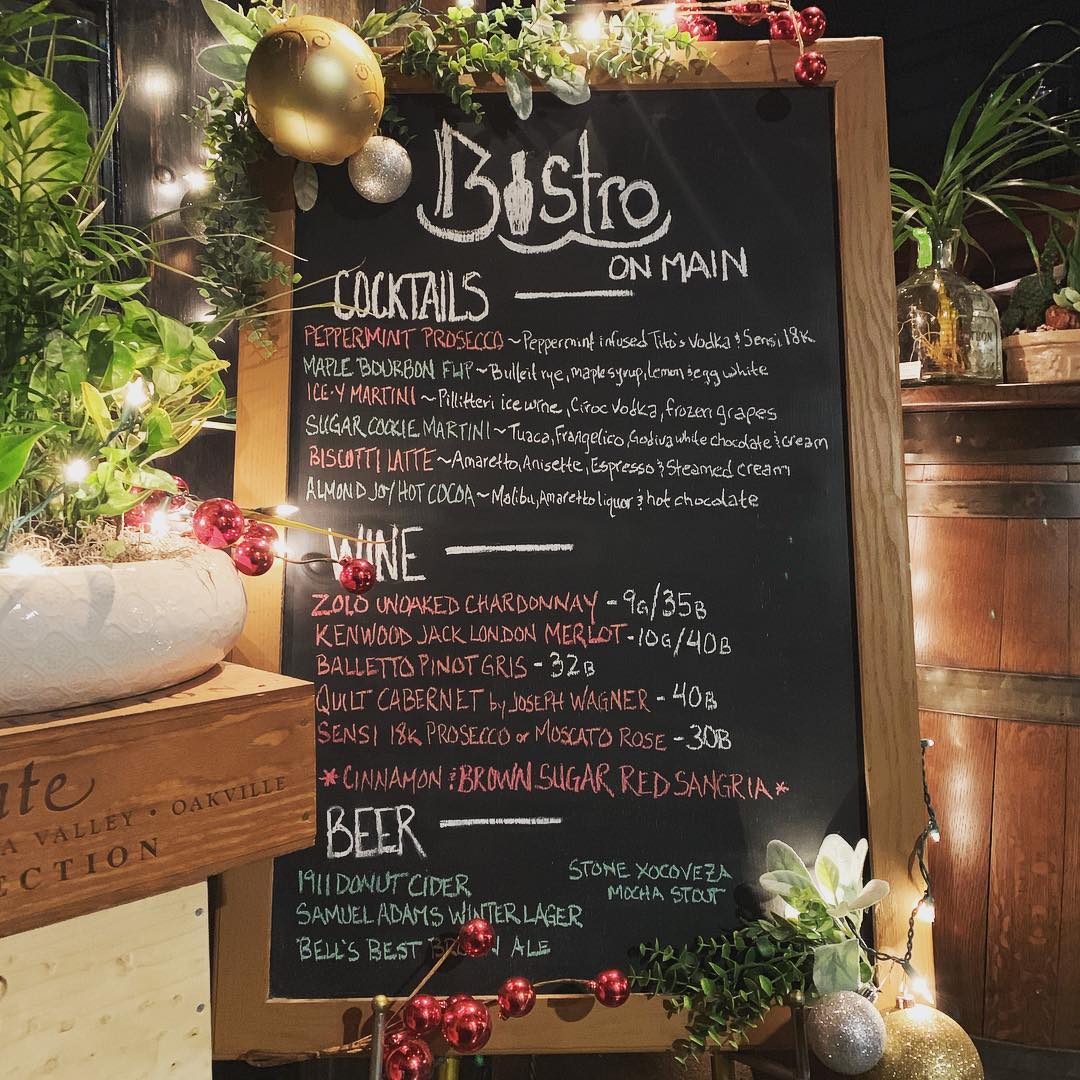 Bistro
ON MAIN
COCKTAILS
PEPPERMINT PROSECCO ~ Peppermint infused Tito's Vodka & Sensi 18K
MAPLE BOURBON FLIP ~ Bulleit rye, maple syrup, lemon & egg white
ICE-Y MARTINI ~ Pillitteri ice wine, Ciroc Vodka, frozen grapes
SUGAR COOKIE MARTINI ~ Tuaca, Frangelico, Godiva white chocolate & cream
BISCOTTI LATTE ~ Amaretto, Anisette, Espresso & Steamed cream
ALMOND JOY HOT COCOA ~ Malibu, Amaretto liquor & hot chocolate
WINE
ZOLO UNOAKED CHARDONNAY - 9G/35B
KENWOOD JACK LONDON MERLOT - 10G/40B
BALLETTO PINOT GRIS - 32B
QUILT CABERNET by JOSEPH WAGNER - 40B
SENSI 18K PROSECCO or MOSCATO ROSE - 30B
*CINNAMON & BROWN SUGAR RED SANGRIA*
BEER
1911 DONUT CIDER
SAMUEL ADAMS WINTER LAGER
BELL'S BEST BROWN ALE
STONE XOCOVEZA
MOCHA STOUT
VALLEY • OAKVILLE